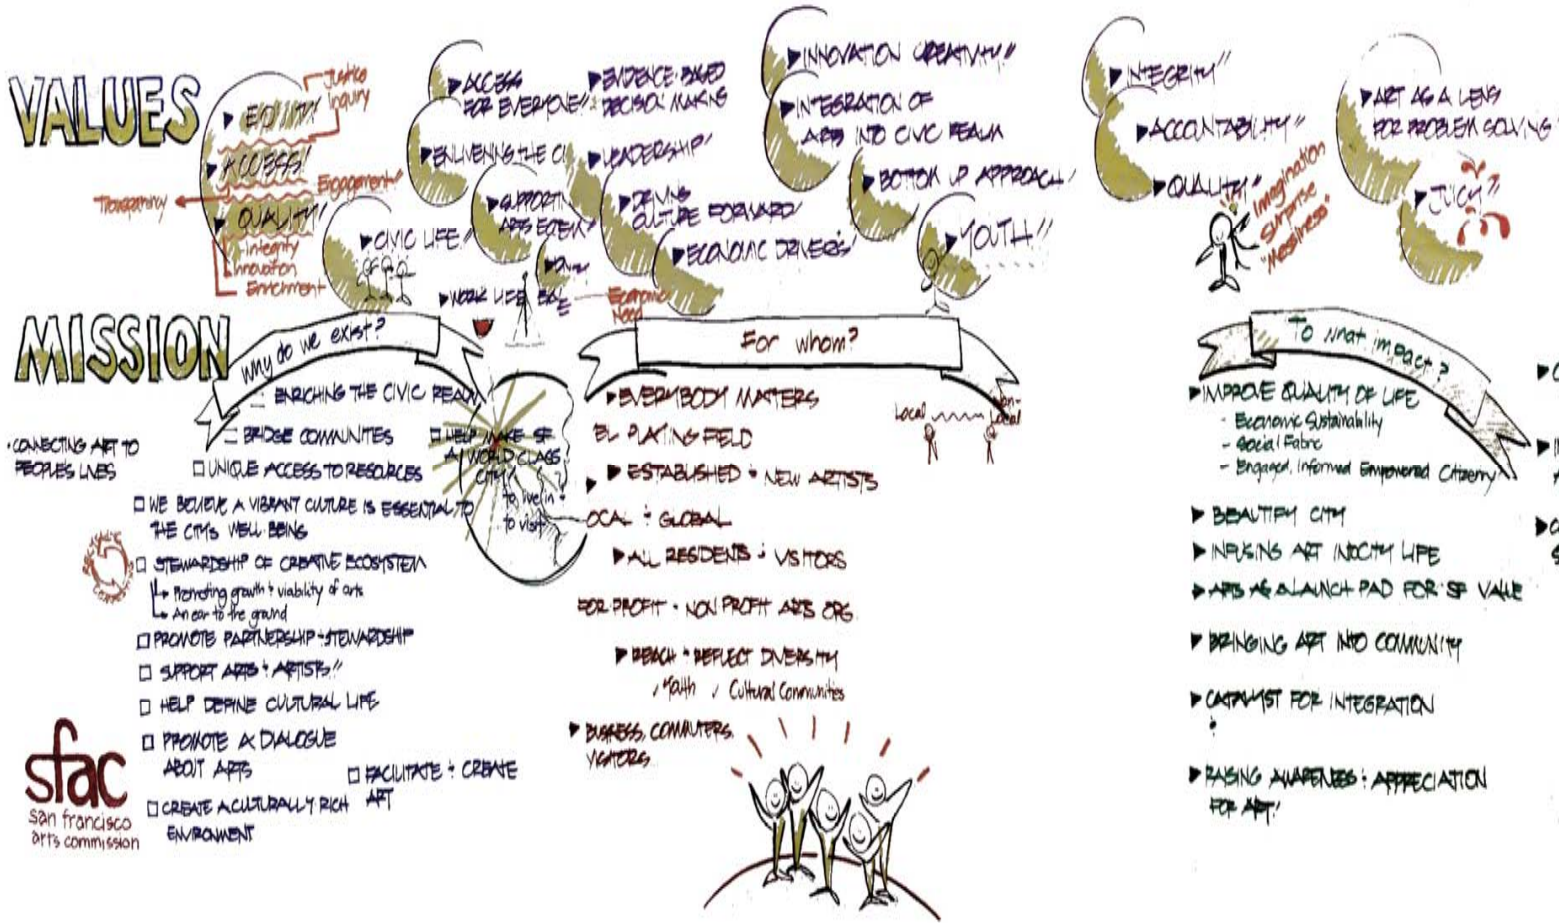 VALUES
Justice
Inquiry
EQUITY!
ACCESS!
Engagement"
Transparency
QUALITY!
Integrity
Innovation
Enrichment
CIVIC LIFE"
ACCESS
FOR EVERYONE"
ENLIVENING THE CI
SUPPORTIN
ARTS ECOSYSTEM"
WORK LIFE BAL
Economic
Need
EVIDENCE BASED
DECISION MAKING
LEADERSHIP!
DRIVING
CULTURE FORWARD!
ECONOMIC DRIVERS!
INNOVATION CREATIVITY"
INTEGRATION OF
ARTS INTO CIVIC REALM
BOTTOM UP APPROACH!
YOUTH"
INTEGRITY"
ACCOUNTABILITY"
QUALITY"
Imagination
Surprise
"Messiness"
ART AS A LENS
FOR PROBLEM SOLVING
JUICY"
MISSION
Why do we exist?
ENRICHING THE CIVIC REALM
BRIDGE COMMUNITES
• CONNECTING ART TO
PEOPLES LIVES
□ UNIQUE ACCESS TO RESOURCES
□ HELP MAKE SF
A WORLD CLASS
CITY!
to live in +
to visit
□ WE BELIEVE A VIBRANT CULTURE IS ESSENTIAL TO
THE CITYS WELL BEING
□ STEWARDSHIP OF CREATIVE ECOSYSTEM
Promoting growth + viability of arts
An ear to the ground
□ PROMOTE PARTNERSHIP + STEWARDSHIP
□ SUPPORT ARTS + ARTISTS"
□ HELP DEFINE CULTURAL LIFE
□ PROMOTE A DIALOGUE
ABOUT ARTS
□ FACILITATE + CREATE
ART
□ CREATE A CULTURALLY RICH
ENVIRONMENT
sfac
san francisco
arts commission
For whom?
EVERYBODY MATTERS
EL PLAYING FIELD
ESTABLISHED + NEW ARTISTS
OCAL + GLOBAL
ALL RESIDENTS + VISITORS
FOR PROFIT + NON PROFIT ARTS ORG.
REACH + REFLECT DIVERSITY
✓ Youth ✓ Cultural Communities
BUSINESS, COMMUTERS,
VISITORS
Local
Non-
Local
To what impact?
IMPROVE QUALITY OF LIFE
- Economic Sustainability
- Social Fabric
- Engaged, Informed Empowered Citizenry
BEAUTIFY CITY
INFUSING ART INTO CITY LIFE
ARTS AS A LAUNCH PAD FOR SF VALUE
BRINGING ART INTO COMMUNITY
CATALYST FOR INTEGRATION
+
RAISING AWARENESS + APPRECIATION
FOR ART!